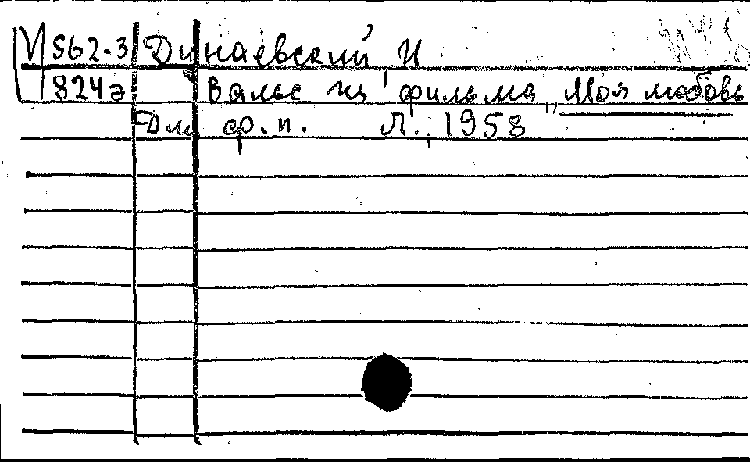 М 562-3 Динаевский И
824э Вальс из фильма „Моя любовь
Для ф.п. Л., 1958